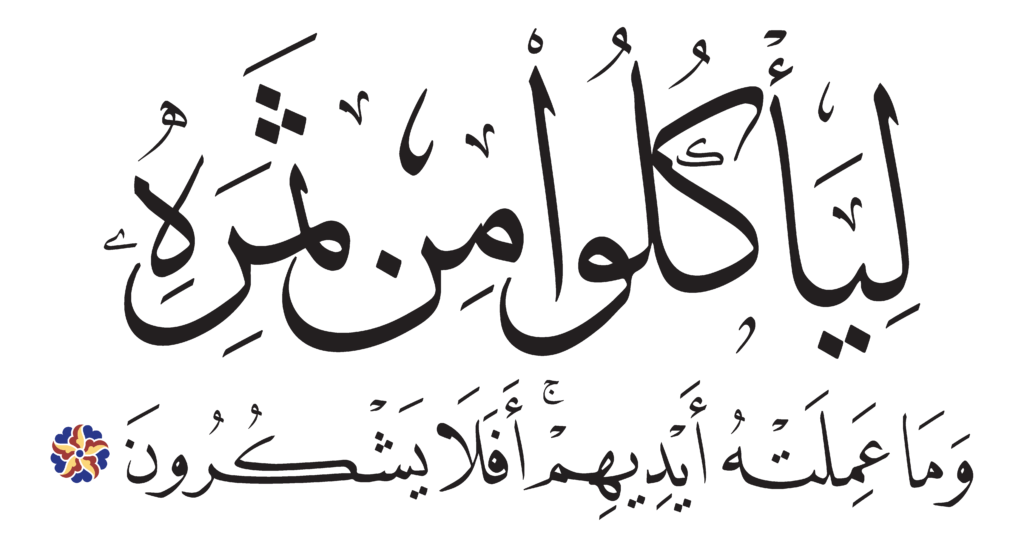 لِيَأْكُلُوا۟ مِن ثَمَرِهِۦ
وَمَا عَمِلَتْهُ أَيْدِيهِمْ ۚ أَفَلَا يَشْكُرُونَ